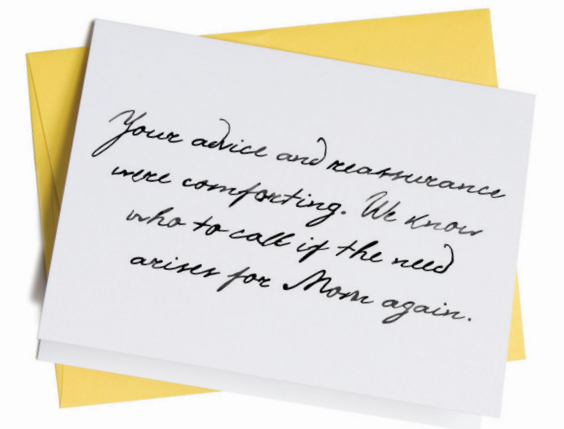 Your advice and reassurance
were comforting. We know
who to call if the need
arises for Mom again.